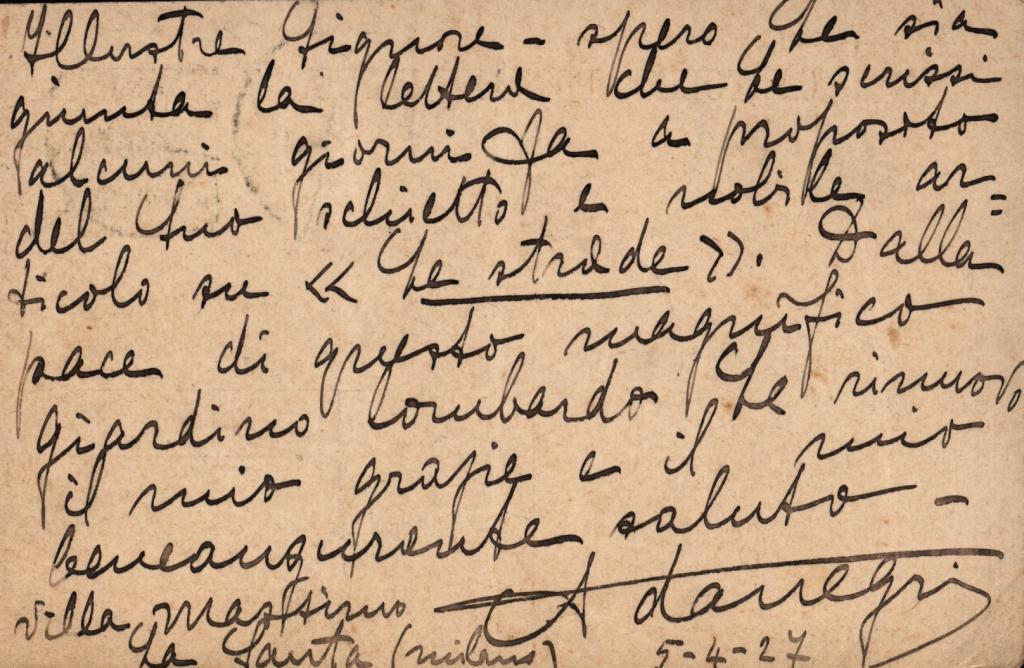 Illustre Signore - spero Le sia
giunta la lettera che Le scrissi
alcuni giorni fa a proposito
del Suo schietto e nobile ar=
ticolo su « Le strade ». Dalla
pace di questo magnifico
giardino lombardo Le rinnovo
il mio grazie e il mio
beneaugurante saluto -
Ada Negri
Villa
La Santa (Milano) 5-4-27